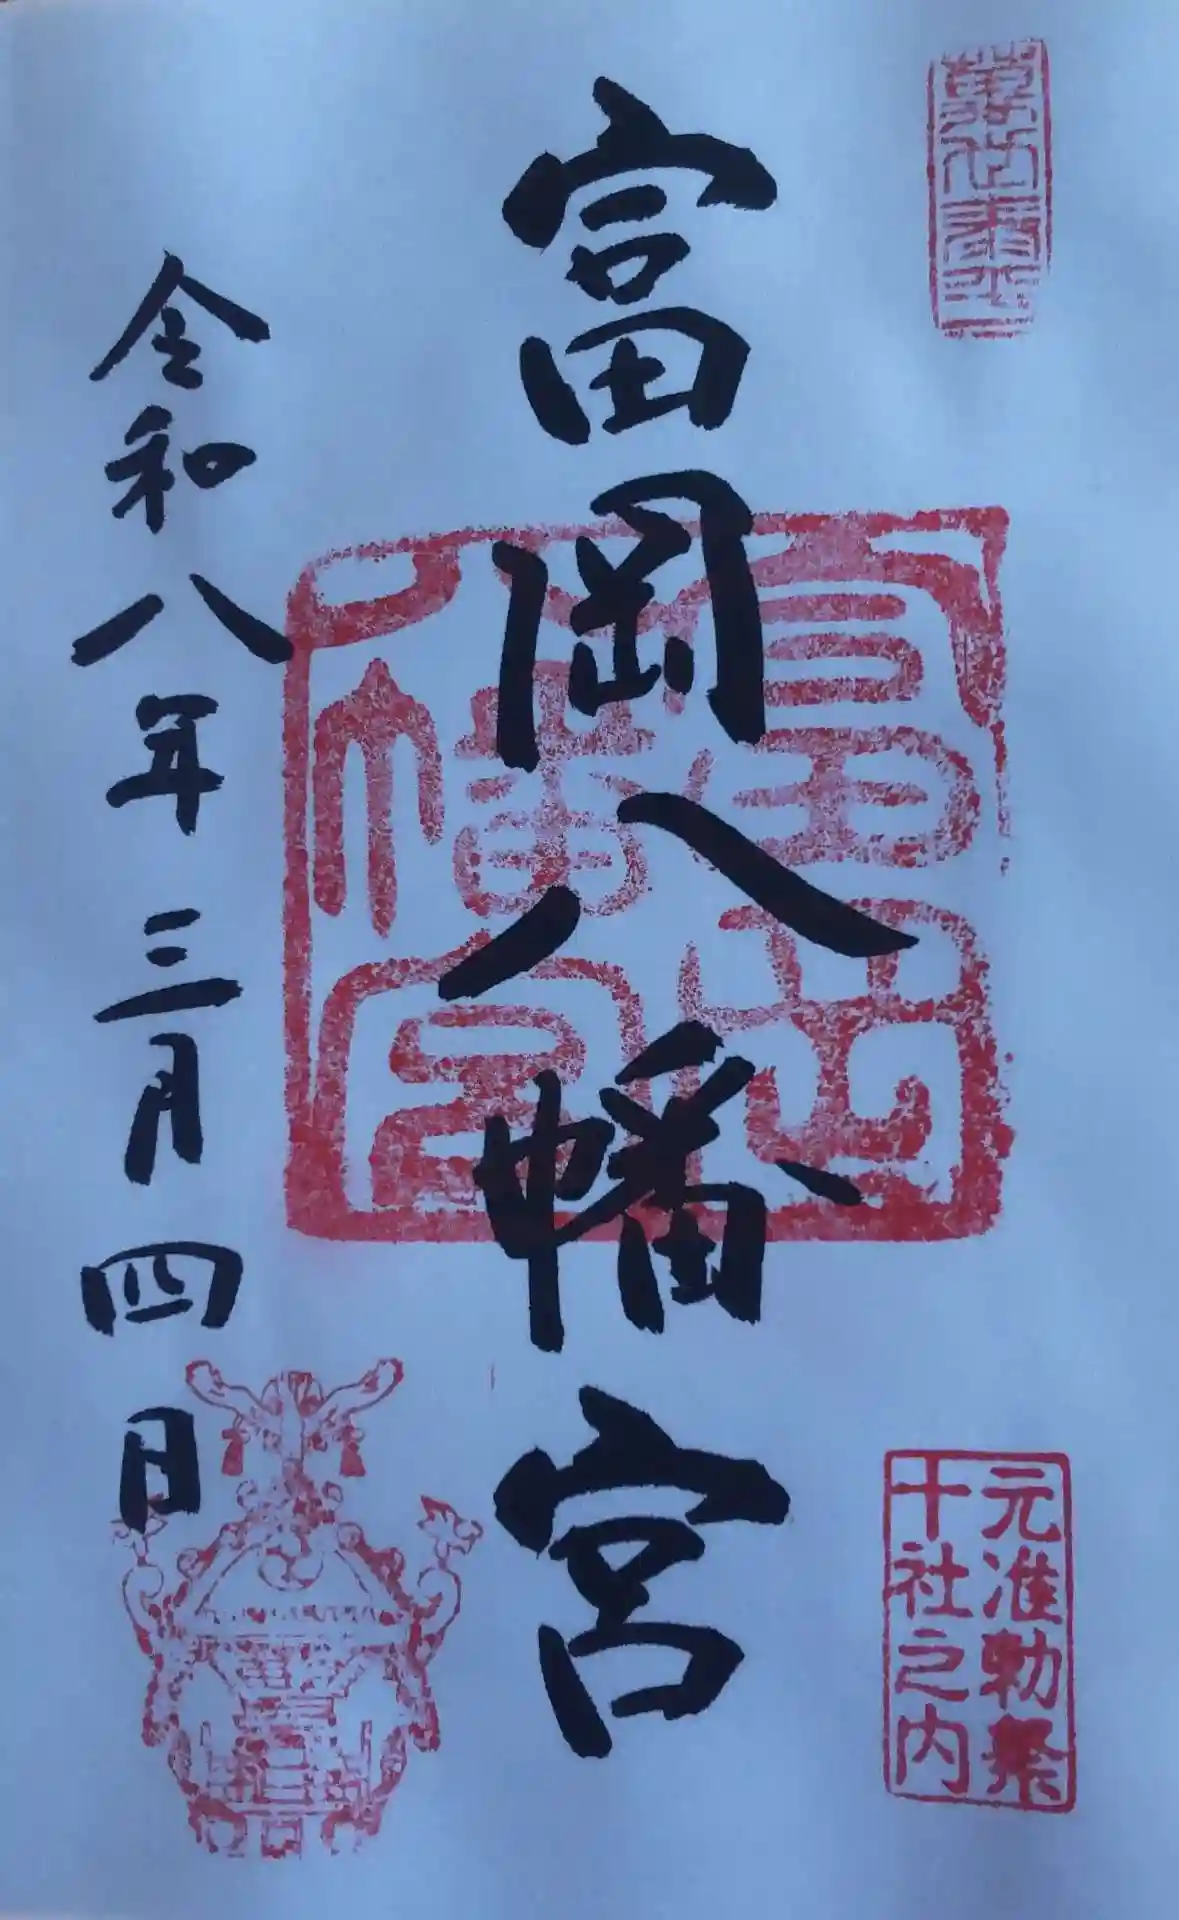 富岡八幡宮
元准勅祭
十社之内
令和八年三月四日